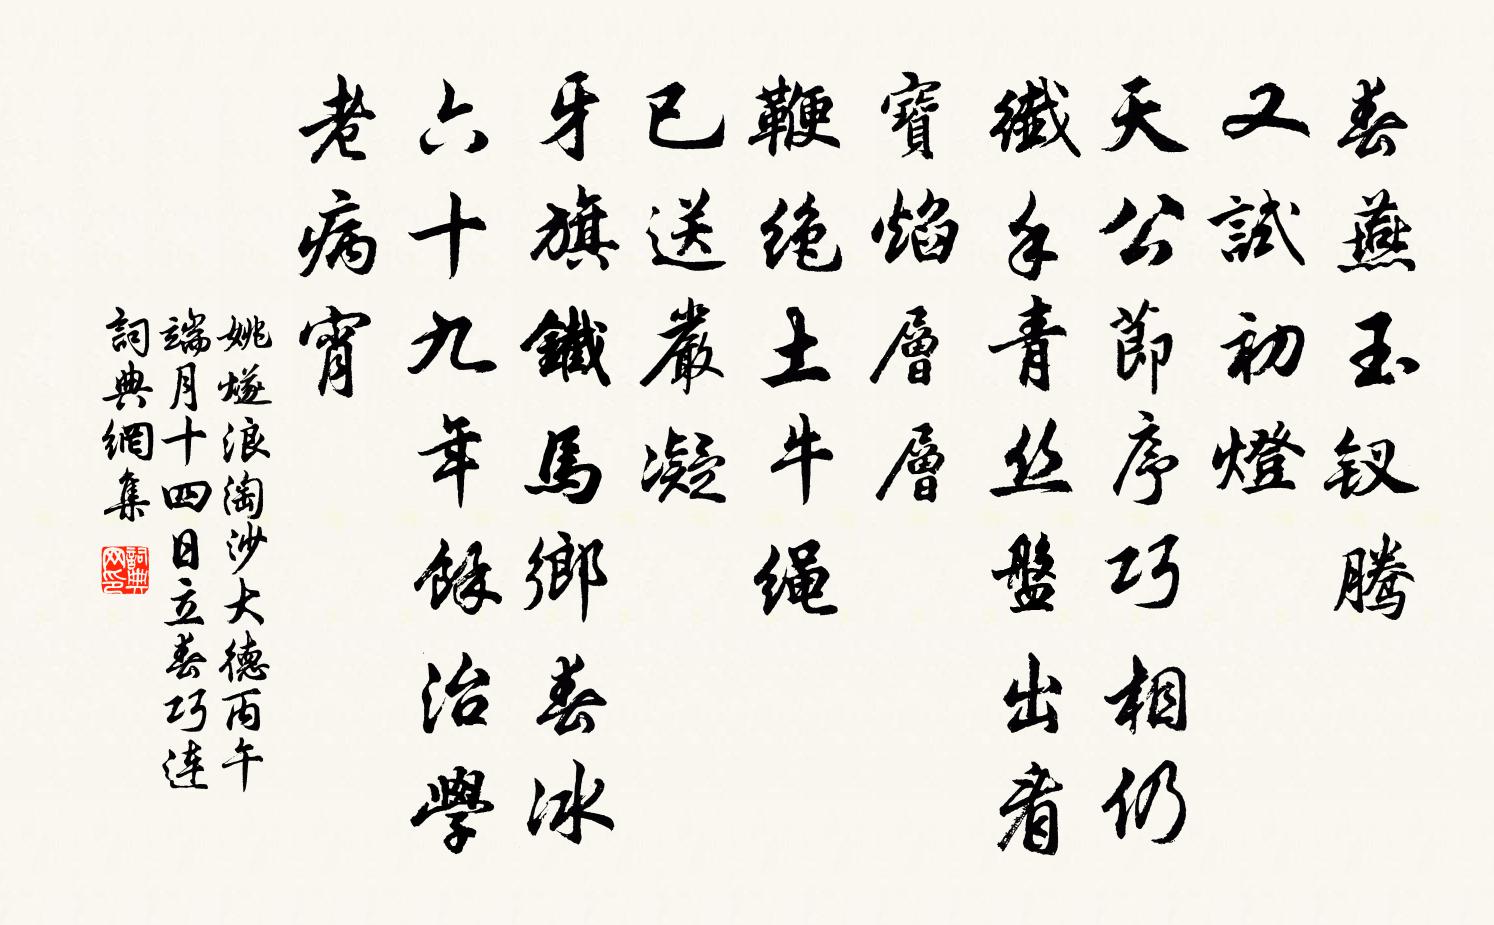 春燕玉钗腾
又試初燈
天公節序巧相仍
纖手青丝盤出看
寶焰層層
鞭绝土牛绳
已送嚴凝
牙旗鐵馬鄉春冰
六十九年餘治學
老病宵
姚燧浪淘沙大德丙午
端月十四日立春巧连
詞典網集
詞典网印